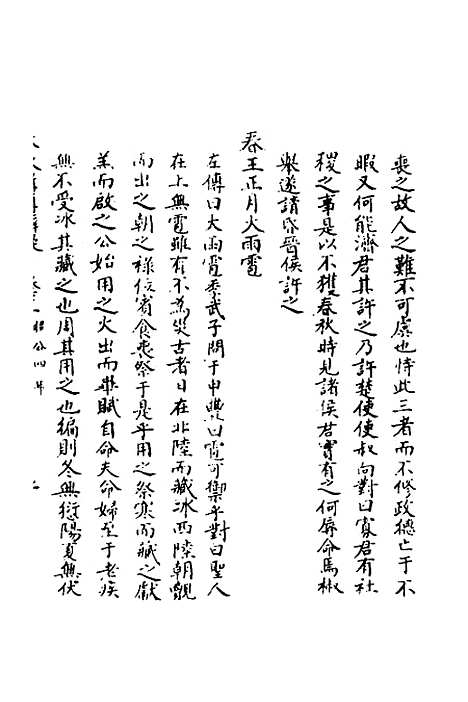 喪之故人之難不可虞也恃此三者而不修政德亡于不
暇又何能濟君其許之乃許楚使使叔向對曰寡君有社
稷之事是以不獲春秋時見諸侯君實有之何辱命焉椒
舉遂請昏晉侯許之
春王正月大雨雹
左傳曰大雨雹季武子問于申豐曰雹可禦乎對曰聖人
在上無雹雖有不為災古者日在北陸而藏冰西陸朝覿
而出之朝之祿位賓食喪祭于是乎用之祭寒而藏之獻
羔而啟之公始用之火出而畢賦自命夫命婦至于老疾
無不受冰其藏之也周其用之也徧則冬無愆陽夏無伏
昭公四年